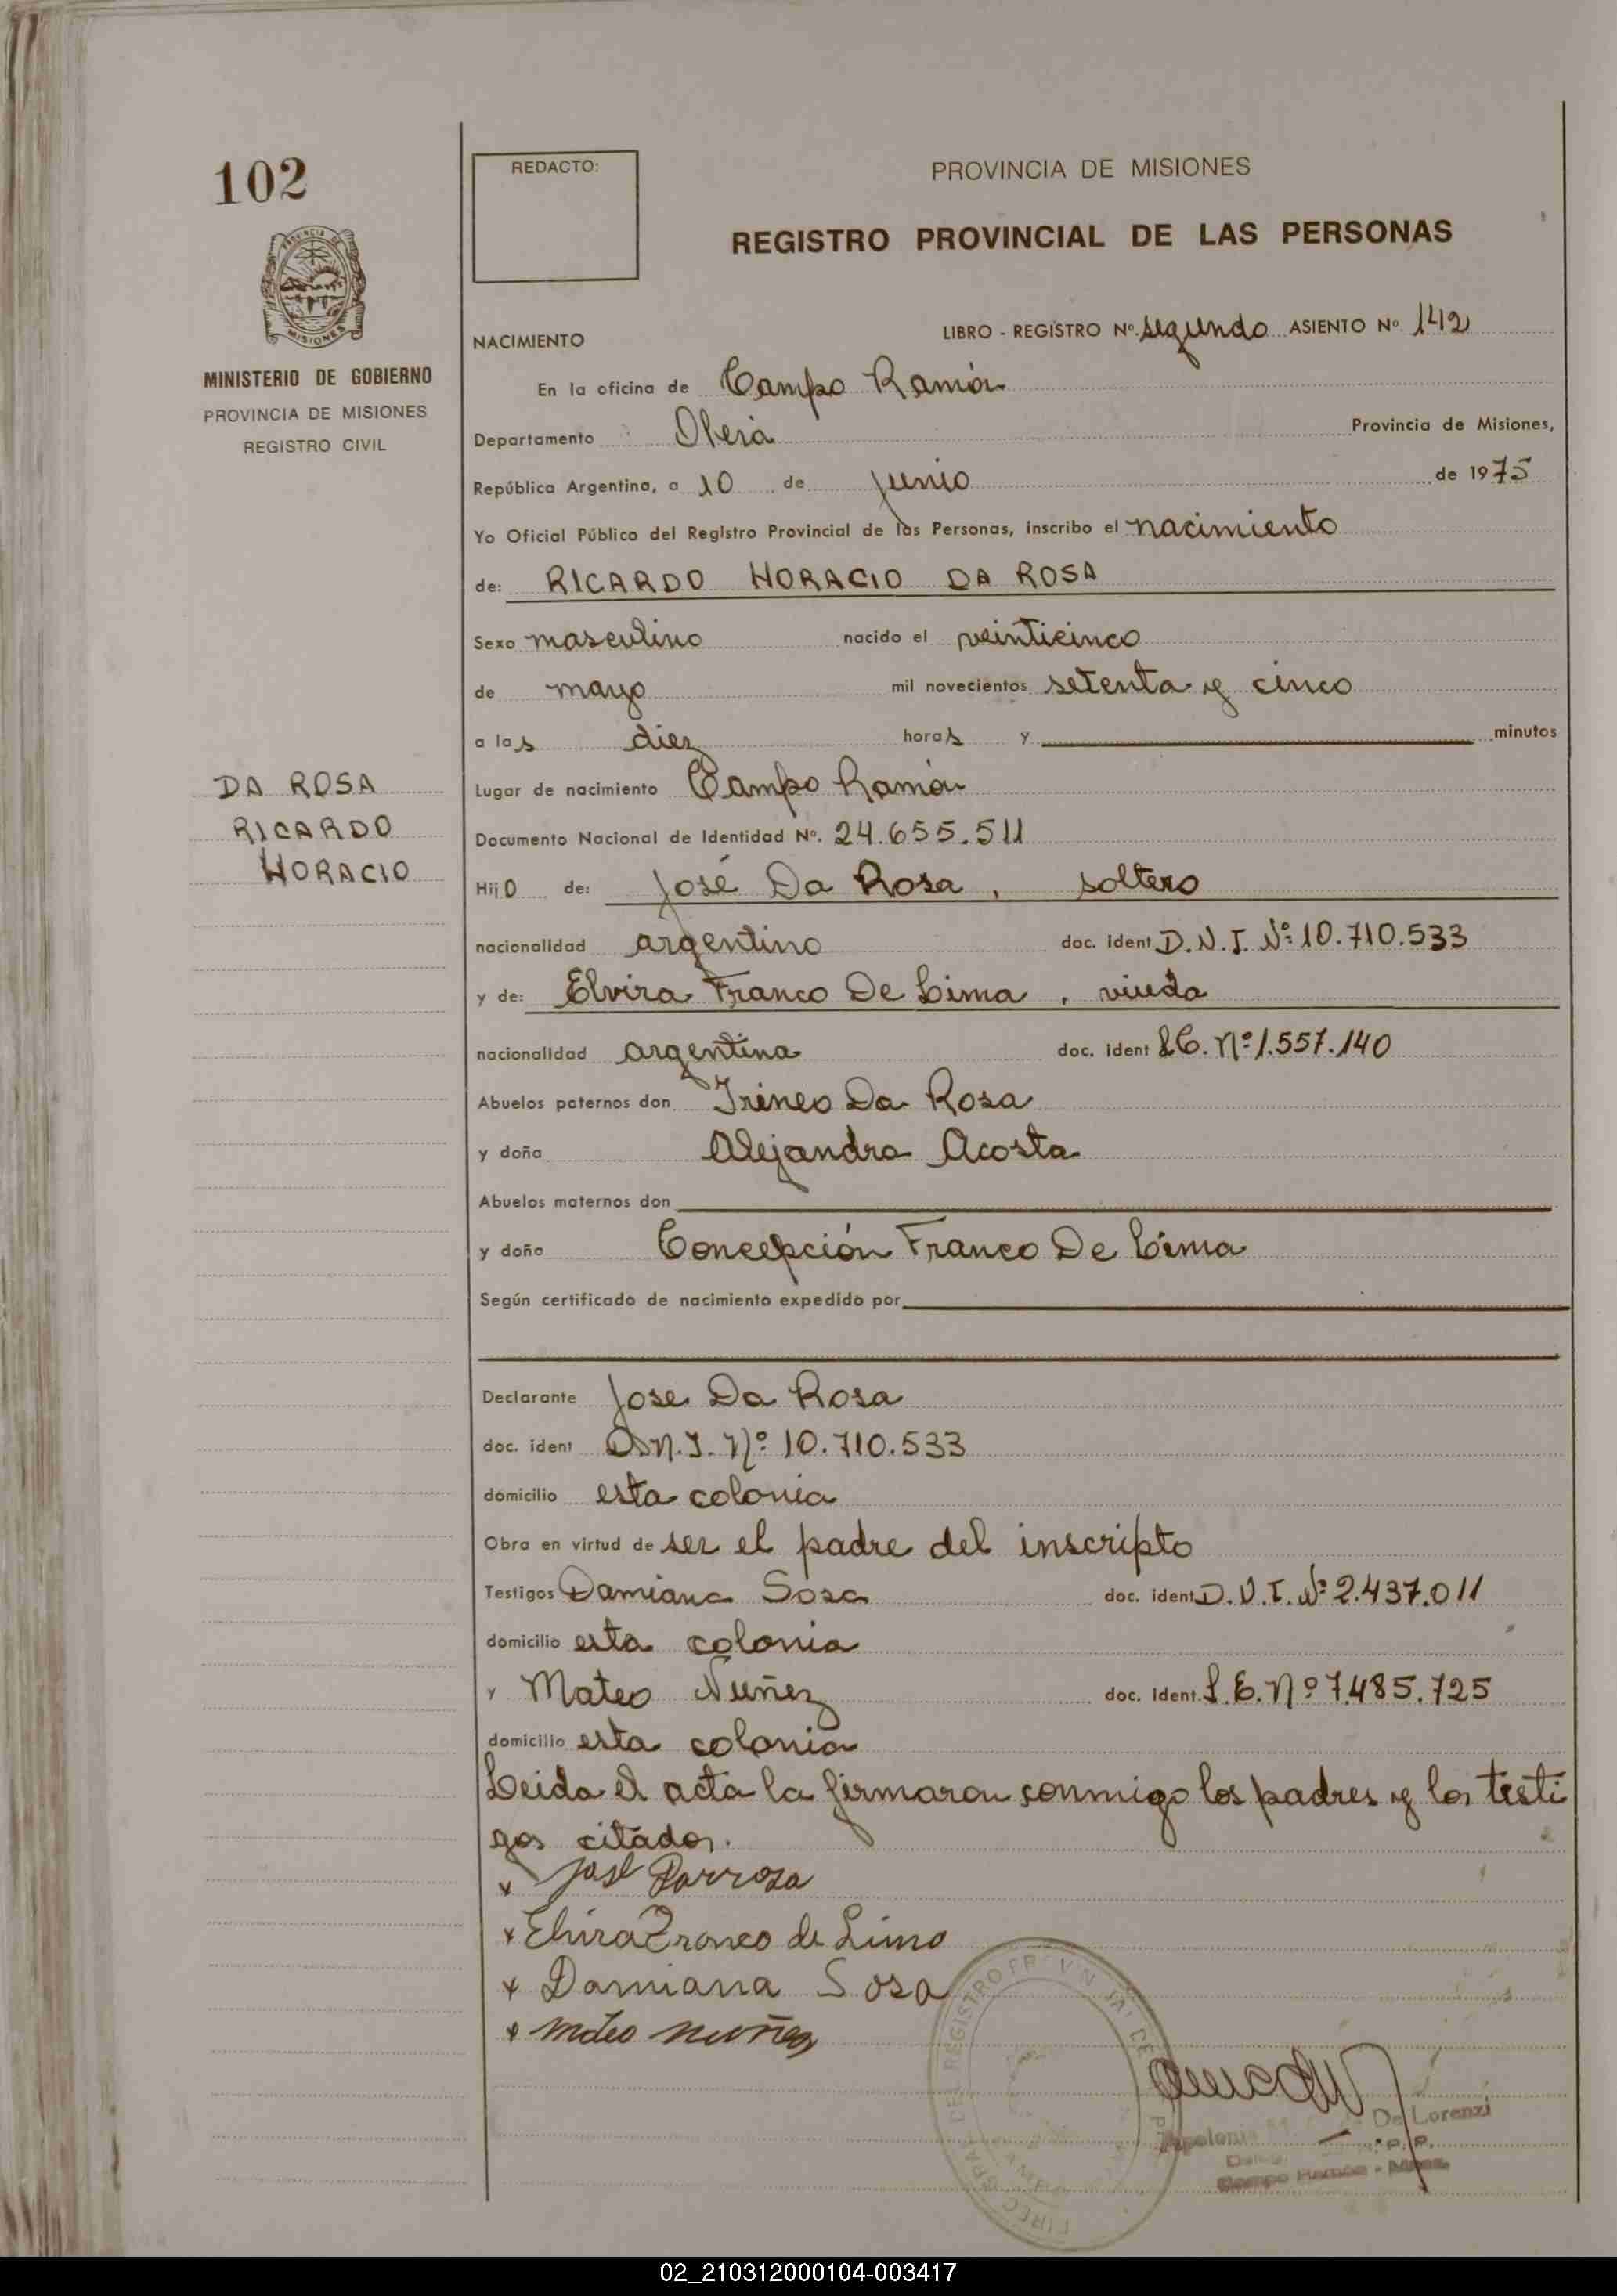 102
PROVINCIA DE
MISIONES
MINISTERIO DE GOBIERNO
PROVINCIA DE MISIONES
REGISTRO CIVIL
DA ROSA
RICARDO
HORACIO
REDACTO:
PROVINCIA DE MISIONES
REGISTRO PROVINCIAL DE LAS PERSONAS
NACIMIENTO LIBRO - REGISTRO Nº. segundo ASIENTO Nº 142
En la oficina de Campo Ramón
Departamento Oberá Provincia de Misiones,
República Argentina, a 10 de junio de 1975
Yo Oficial Público del Registro Provincial de las Personas, inscribo el nacimiento
de: RICARDO HORACIO DA ROSA
Sexo masculino nacido el veinticinco
de mayo mil novecientos setenta y cinco
a las diez horas y minutos
Lugar de nacimiento Campo Ramón
Documento Nacional de Identidad Nº. 24.655.511
Hijo de: José Da Rosa, soltero
nacionalidad argentino doc. ident D.N.I. Nº 10.710.533
y de: Elvira Franco De Lima, viuda
nacionalidad argentina doc. ident L.C. Nº 1.557.140
Abuelos paternos don Irineo Da Rosa
y doña Alejandra Acosta
Abuelos maternos don
y doña Concepción Franco De Lima
Según certificado de nacimiento expedido por
Declarante Jose Da Rosa
doc. ident D.N.I. Nº 10.710.533
domicilio esta colonia
Obra en virtud de ser el padre del inscripto
Testigos Damiana Sosa doc. ident D.N.I. Nº 2.437.011
domicilio esta colonia
y Mateo Nuñez doc. ident. L.E. Nº 7.485.725
domicilio esta colonia
Leida el acta la firmaron conmigo los padres y los testi
gos citados.
x José Darrosa
x Elvira Franco de Lima
x Damiana Sosa
x mateo nuñez
De Lorenzi
Campo Ramón - Mnes.
02_210312000104-003417